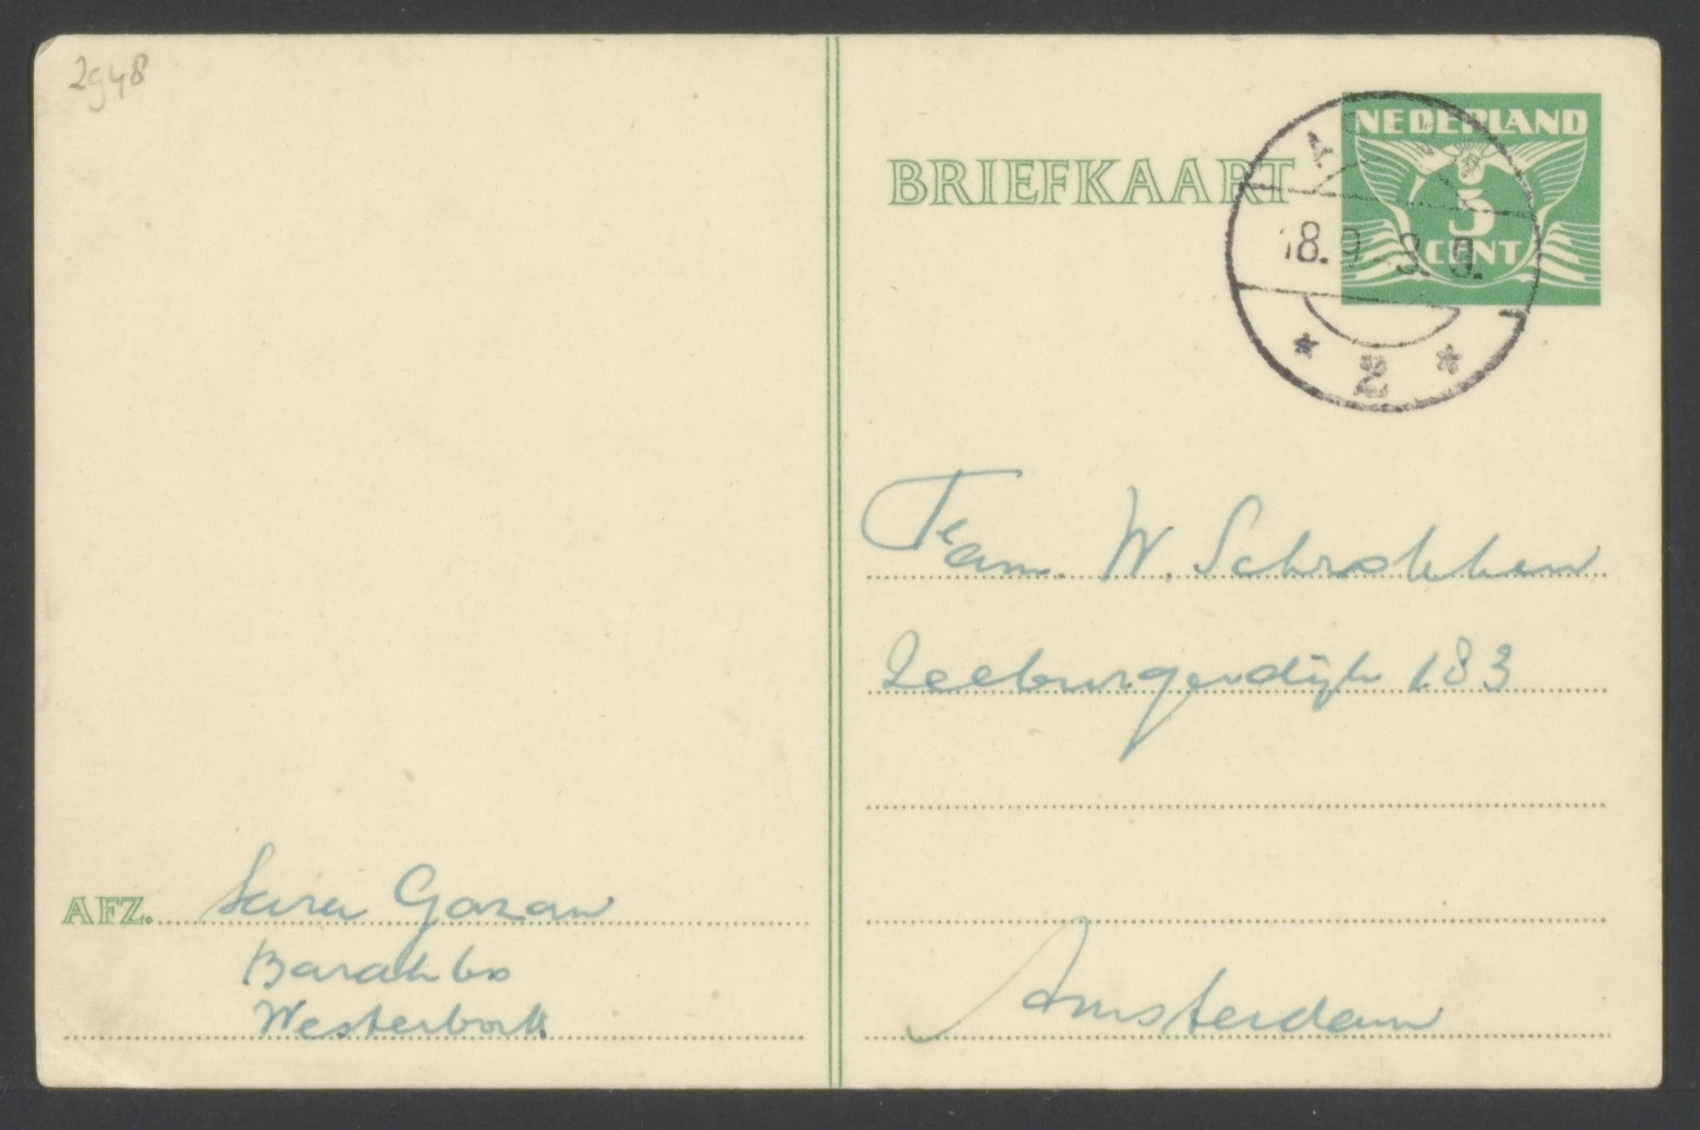 2948
BRIEFKAART
NEDERLAND
5
CENT
18.9. 8. 9.
* 2 *
Fam. W. Schrokken
Zeeburgerdijk 183
AFZ. Sara Gozan
Barak 60
Westerbork
Amsterdam